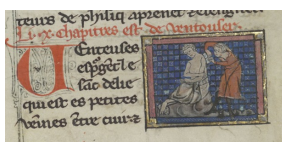 teurs de philiq aprenet
li .x. chapitres est de ventouser
Uenteuses
espurget le
sanc delie
qui est es petites
veines entre cuir ⁊